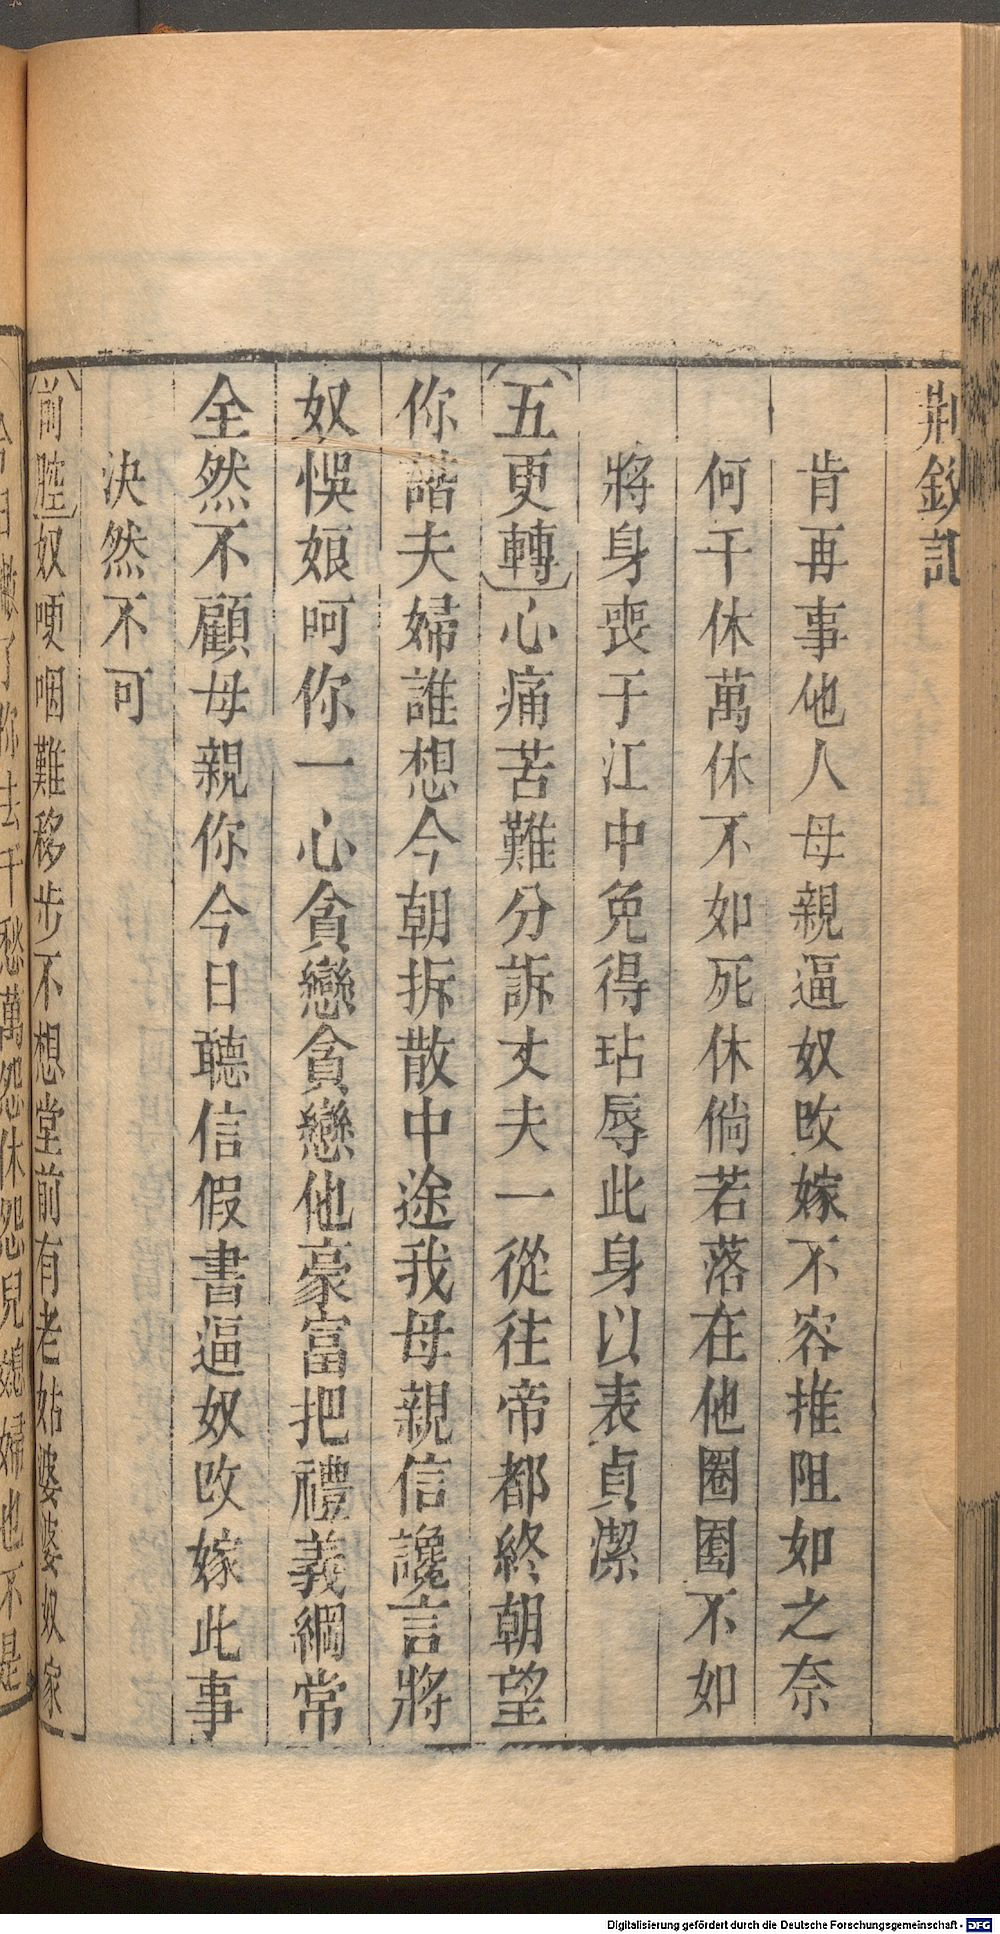 荆釵記
肯再事他人母親逼奴改嫁不容推阻如之奈
何千休萬休不如死休倘若落在他圈圚不如
將身喪于江中免得玷辱此身以表貞潔
五更轉心痛苦難分訴丈夫一從往帝都終朝望
你諧夫婦誰想今朝拆散中途我母親信讒言將
奴悞娘呵你一心貪戀貪戀他豪富把禮義綱常
全然不顧母親你今日聽信假書逼奴改嫁此事
決然不可
前腔奴哽咽難移步不想堂前有老姑婆婆奴家
今日撇了你去千愁萬怨休怨兒媳婦也不是
Digitalisierung gefördert durch die Deutsche Forschungsgemeinschaft - DFG